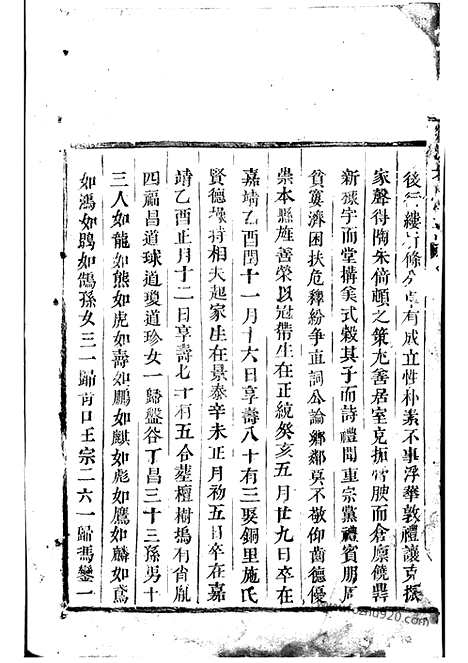 後行縷析條分卓有成立性朴素不事浮華敦禮讓克振
家聲得陶朱倚頓之策尤善居室克振膏腴而倉廪饒
新棟宇而堂搆美式穀其子而詩禮聞重宗黨禮賓朋周
貧寠濟困扶危釋紛爭直詞公論鄉鄰莫不敬仰齒德優
崇本縣旌善榮以冠帶生在正統癸亥五月廿九日卒在
嘉靖乙酉閏十一月十六日享壽八十有三娶銅里施氏
賢德操持相夫起家生在景泰辛未正月初五日卒在嘉
靖乙酉正月十二日享壽七十有五合塟檀樹塢有胤
四福昌道球道瓊道珍女一歸盤谷丁昌三十三孫男十
三人如龍如熊如虎如壽如鵬如麒如彪如鷹如麟如鳶
如鴻如鶚如鵠孫女三一歸 口王宗二六一歸馮鑾一
www.ouzhu920.com